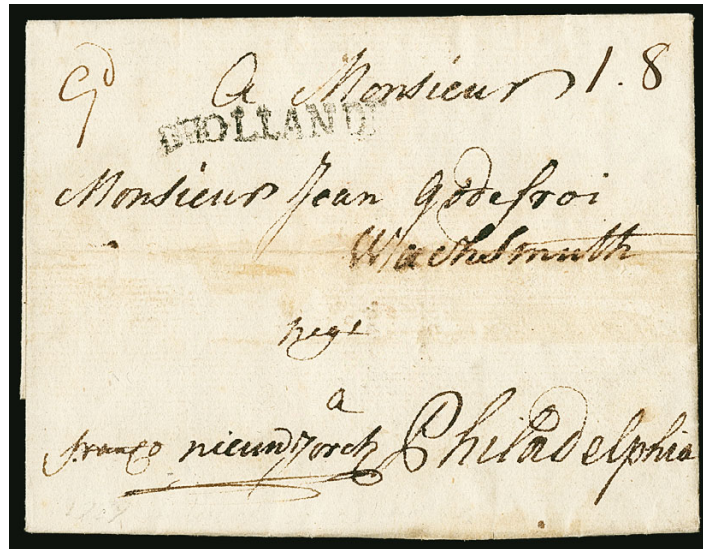 A Monsieur 1.8
D'HOLLANDE
Monsieur Jean Godefroi
Wachsmuth
negt
a
franco nieund Jorck Philadelphia